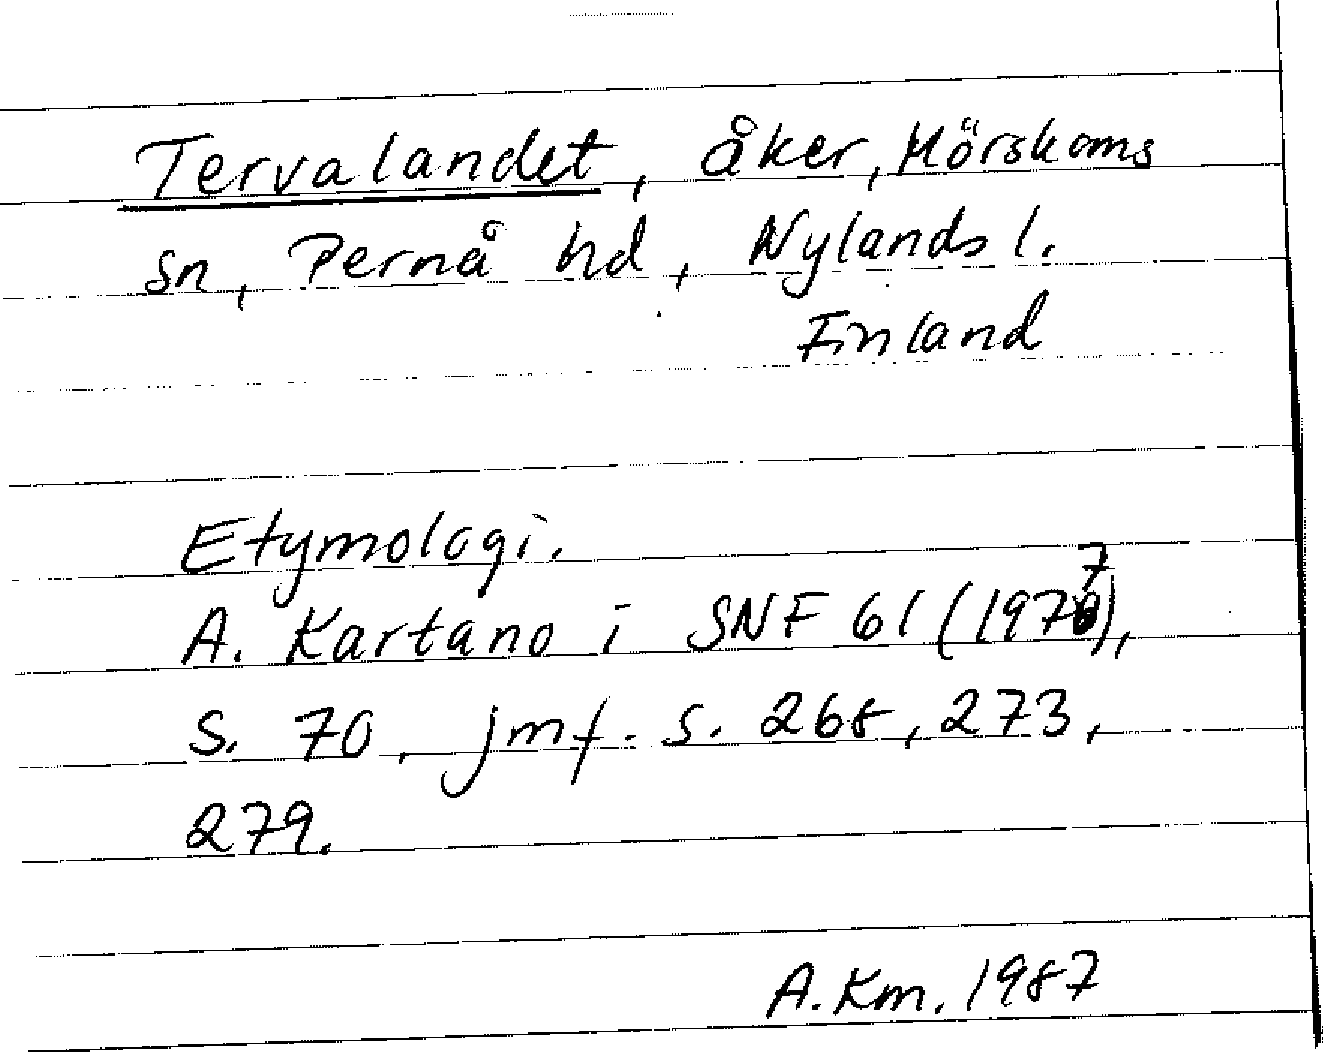 Tervalandet, åker, Mörskoms
sn, Pernå hd, Nylands l.
Finland
Etymologi.
A. Kartano i SNF 61 (1977),
s. 70, jmf. s. 268, 273,
279.
A. Km. 1987